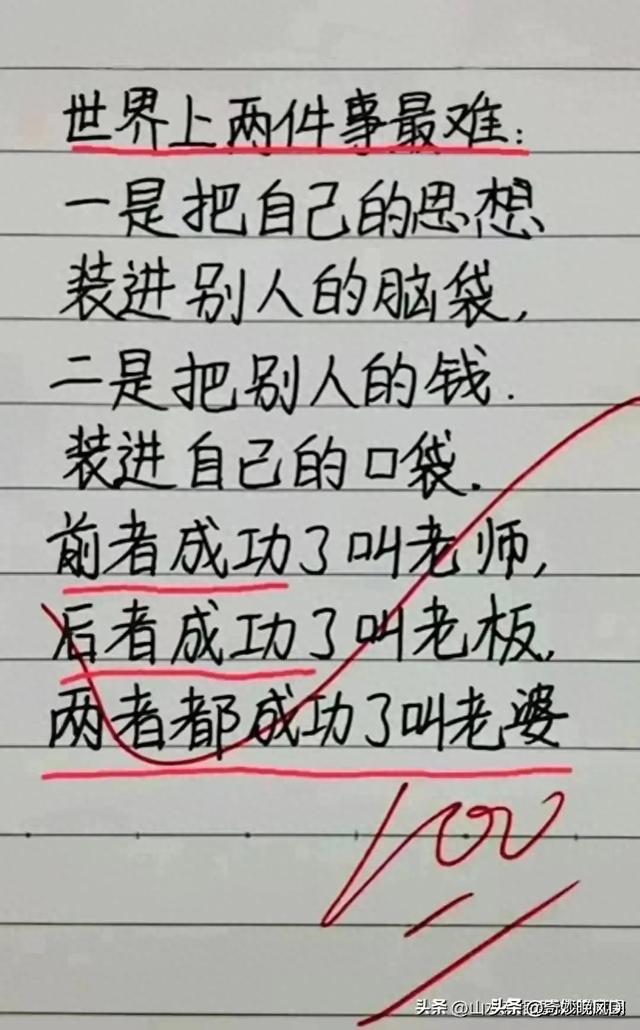 世界上两件事最难:
一是把自己的思想
装进别人的脑袋,
二是把别人的钱.
装进自己的口袋.
前者成功了叫老师,
后者成功了叫老板,
两者都成功了叫老婆
100